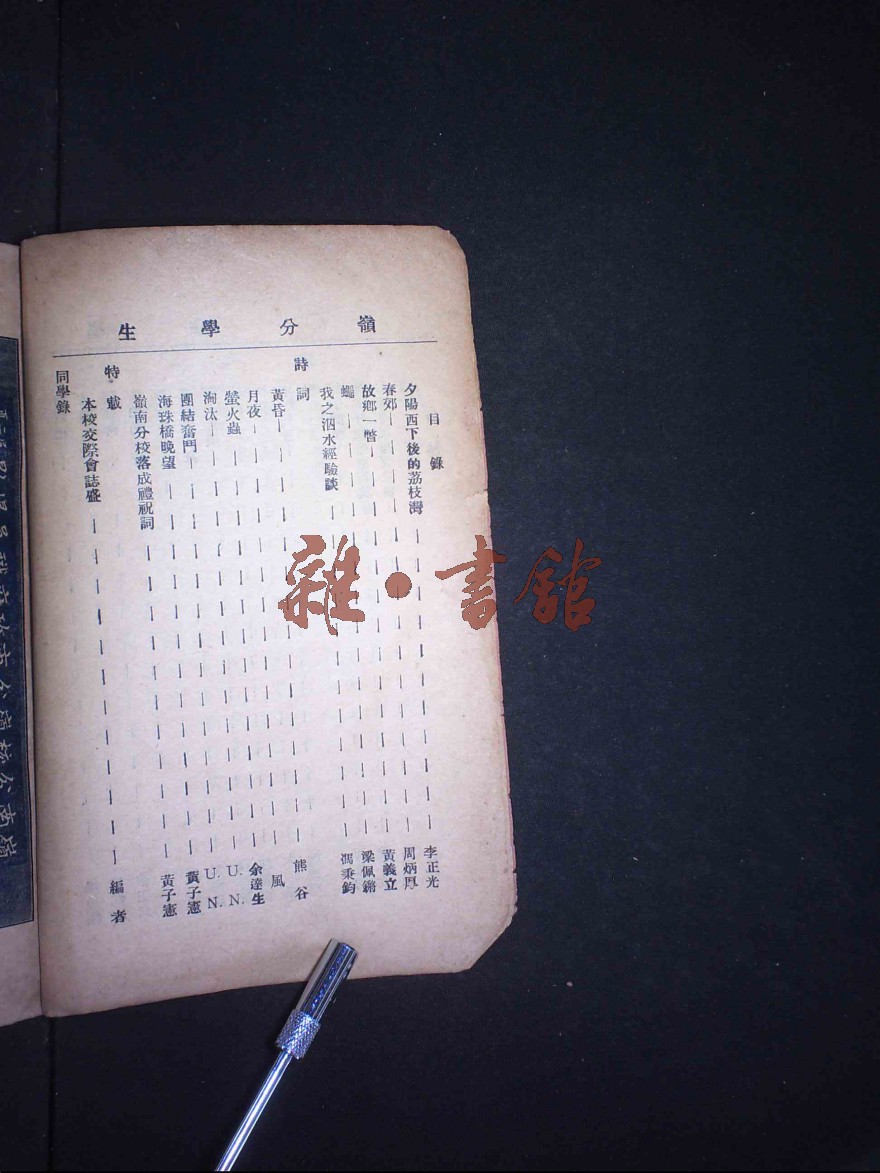 嶺分學生
目錄
夕陽西下後的荔枝灣 李正光
春郊 周炳厚
故鄉一瞥 黃義立
蠅 梁佩鏘
我之泅水經驗談 馮秉鈞
詩詞
黃昏 熊谷
月夜 風
螢火蟲 余達生
淘汰 U. N.
團結奮鬥 U. N.
海珠橋晚望 黃子憲
嶺南分校落成禮祝詞 黃子憲
特載
本校交際會誌盛 編者
同學錄
雜·書館